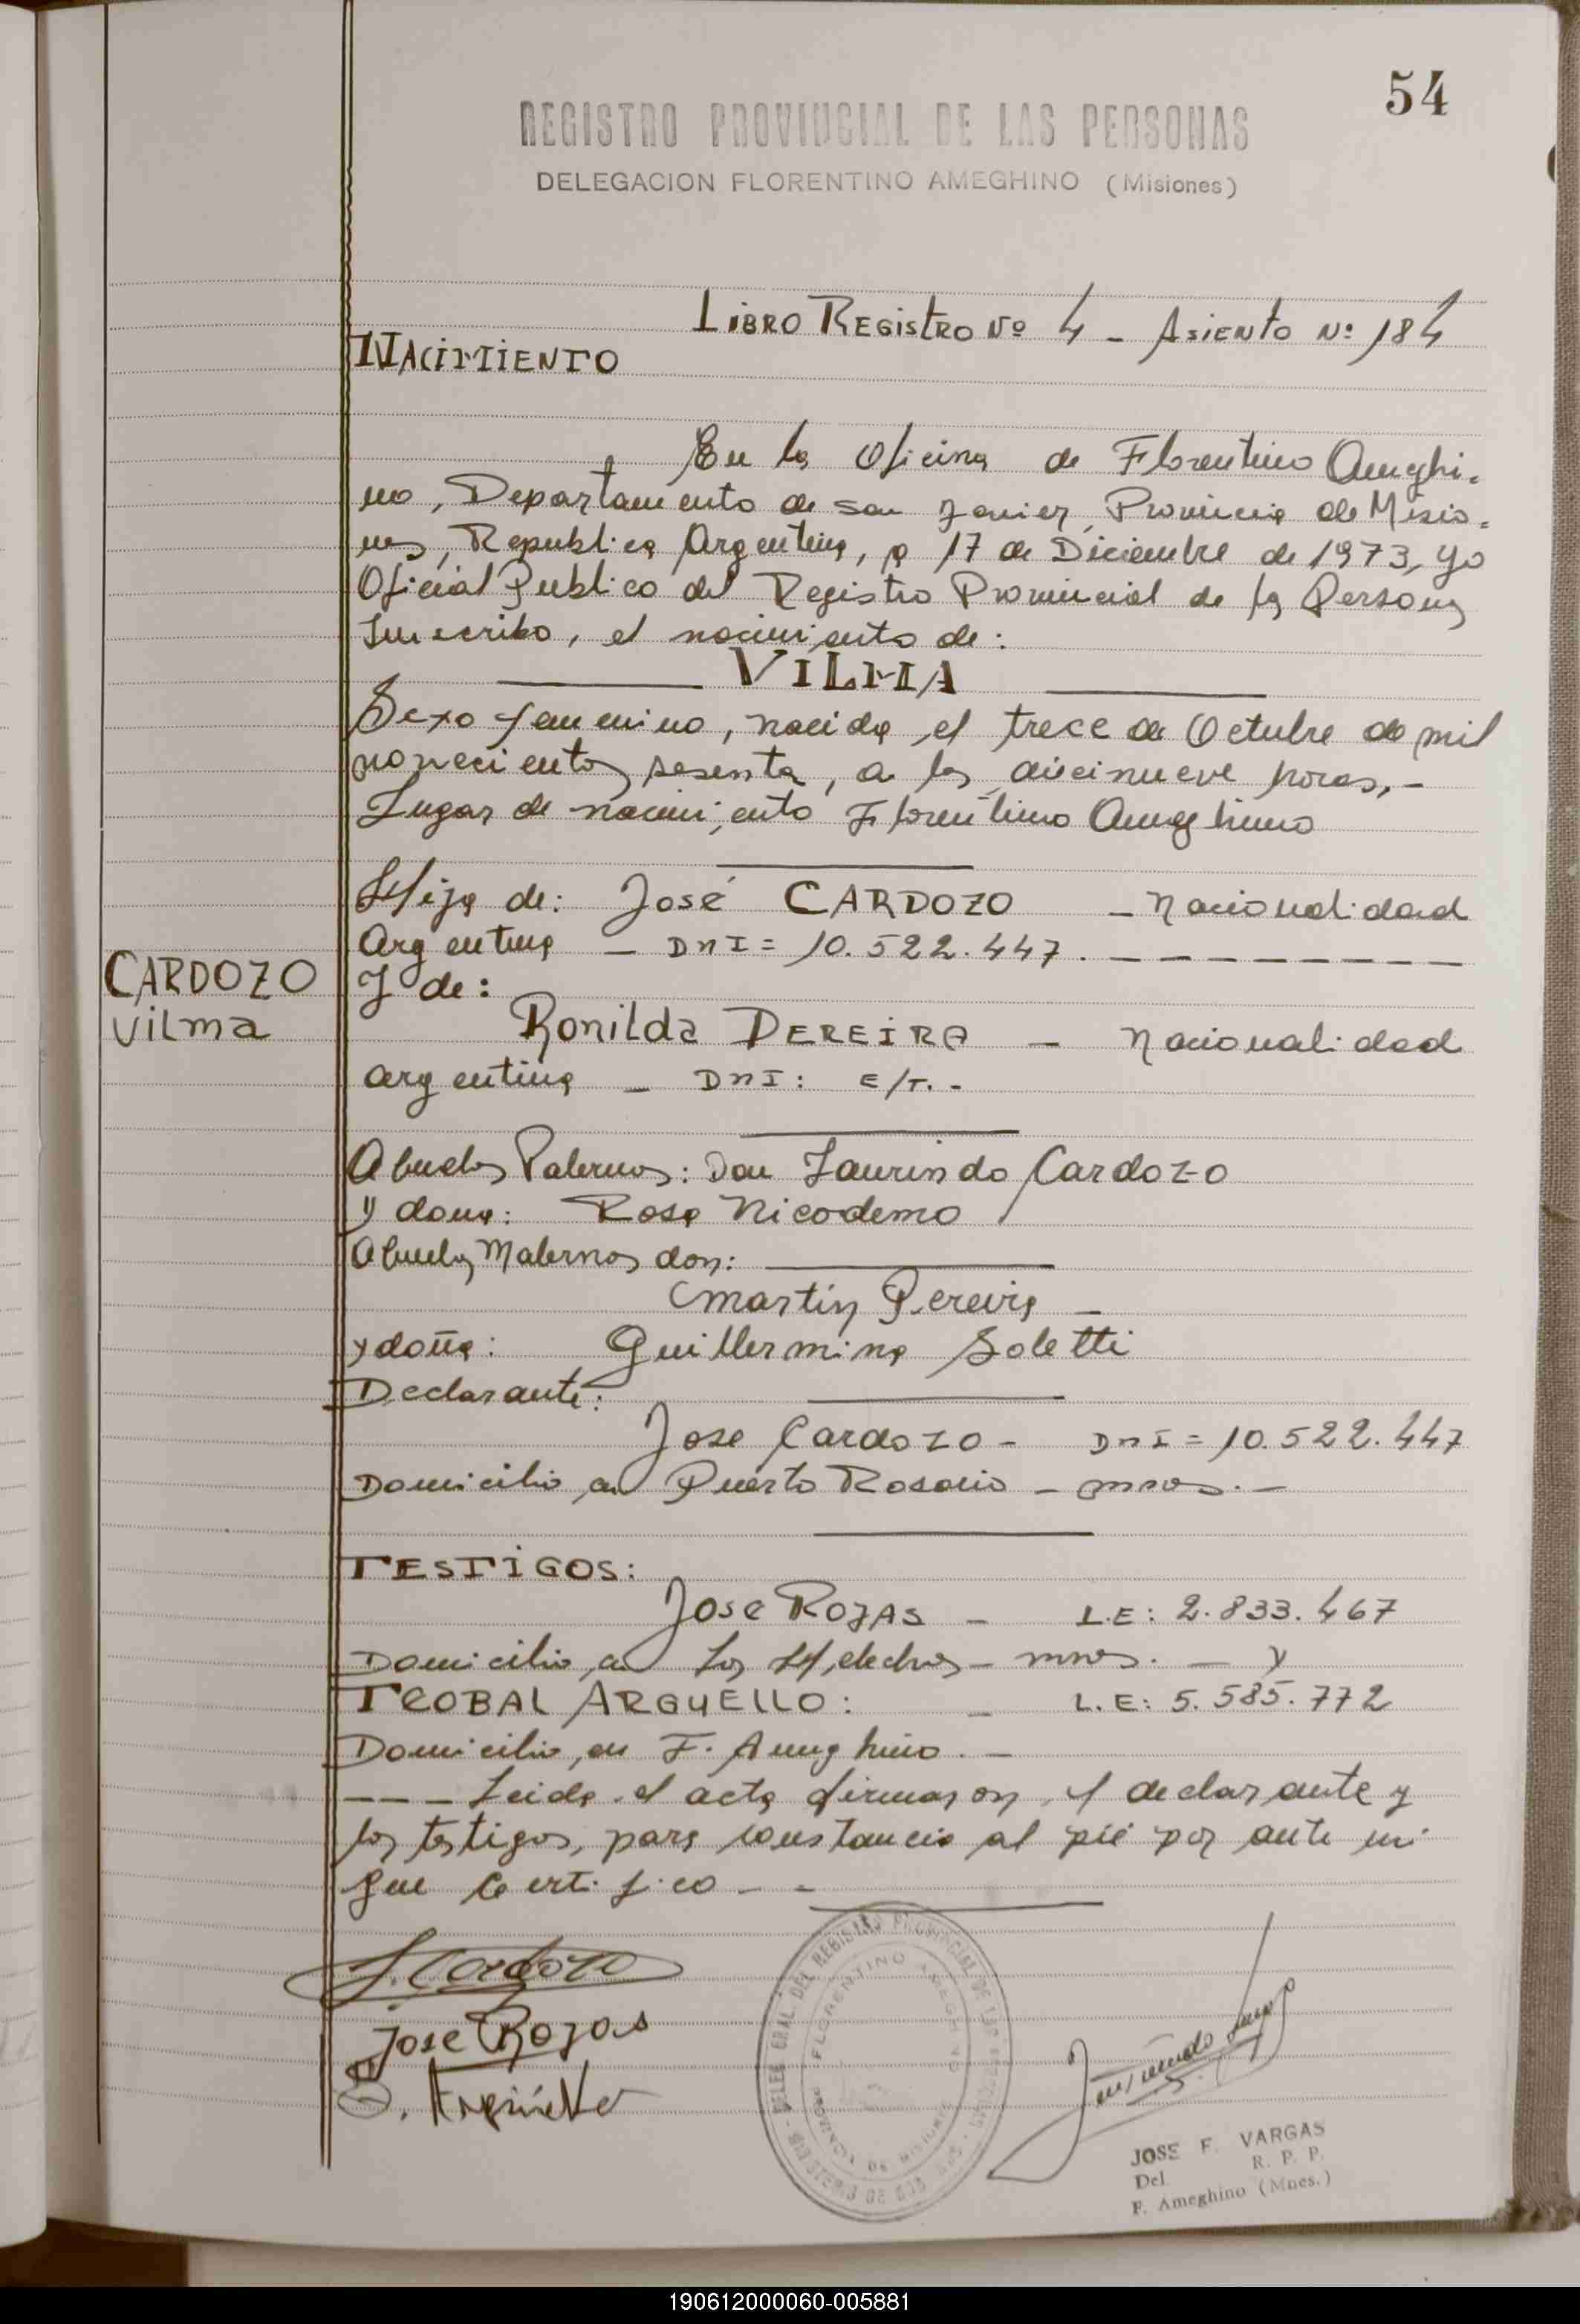 54
REGISTRO PROVINCIAL DE LAS PERSONAS
DELEGACION FLORENTINO AMEGHINO (Misiones)
LIBRO REGISTRO Nº 4 - ASIENTO Nº 184
NACIMIENTO
En la Oficina de Florentino Ameghi-
no, Departamento de San Javier, Provincia de Misio-
nes, Republica Argentina, a 17 de Diciembre de 1973, yo
Oficial Publico del Registro Provincial de las Personas
Inscribo, el nacimiento de:
VILMA
Sexo femenino, nacida el trece de Octubre de mil
novecientos sesenta, a las diecinueve horas,-
Lugar de nacimiento Florentino Ameghino
Hija de: José CARDOZO - Nacionalidad
Argentina - DNI = 10.522.447. - - - - - - - -
Y de:
CARDOZO
Vilma
Romilda DEREIRA - Nacionalidad
argentina - DNI: E/T. -
Abuelos Paternos: Don Laurindo Cardozo
y doña: Rosa Nicodemo
Abuelos Maternos don:
Martin Pereira -
y doña: Guillermina Soletti
Declarante:
Jose Cardozo - DNI = 10.522.447
Domicilio en Puerto Rosario - mnes. -
TESTIGOS:
Jose ROJAS - L.E: 2.833.467
Domicilio en Los Helechos - mnes. - y
TEOBAL ARGUELLO: - L.E: 5.585.772
Domicilio en F. Ameghino. -
- - - Leida el acta firmaron, el declarante y
los testigos, para constancia al pié por ante mi
que Certifico - -
J. Cardozo
Jose Rojas
T. Argüello
DELEG. GRAL. DEL REGISTRO PROVINCIAL DE LAS PERSONAS
FLORENTINO AMEGHINO
PROVINCIA DE MISIONES
JOSE F. VARGAS
Del. R. P. P.
F. Ameghino (Mnes.)
190612000060-005881